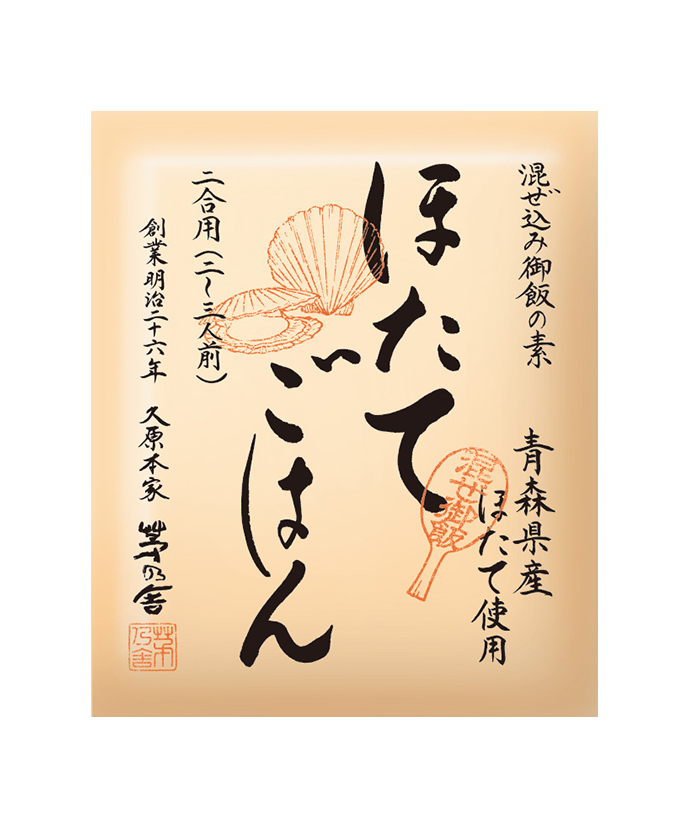 混ぜ込み御飯の素
青森県産
ほたて使用
混ぜ御飯
ほたて
ごはん
二合用(二〜三人前)
創業明治二十六年 久原本家 茅乃舎
茅乃舎